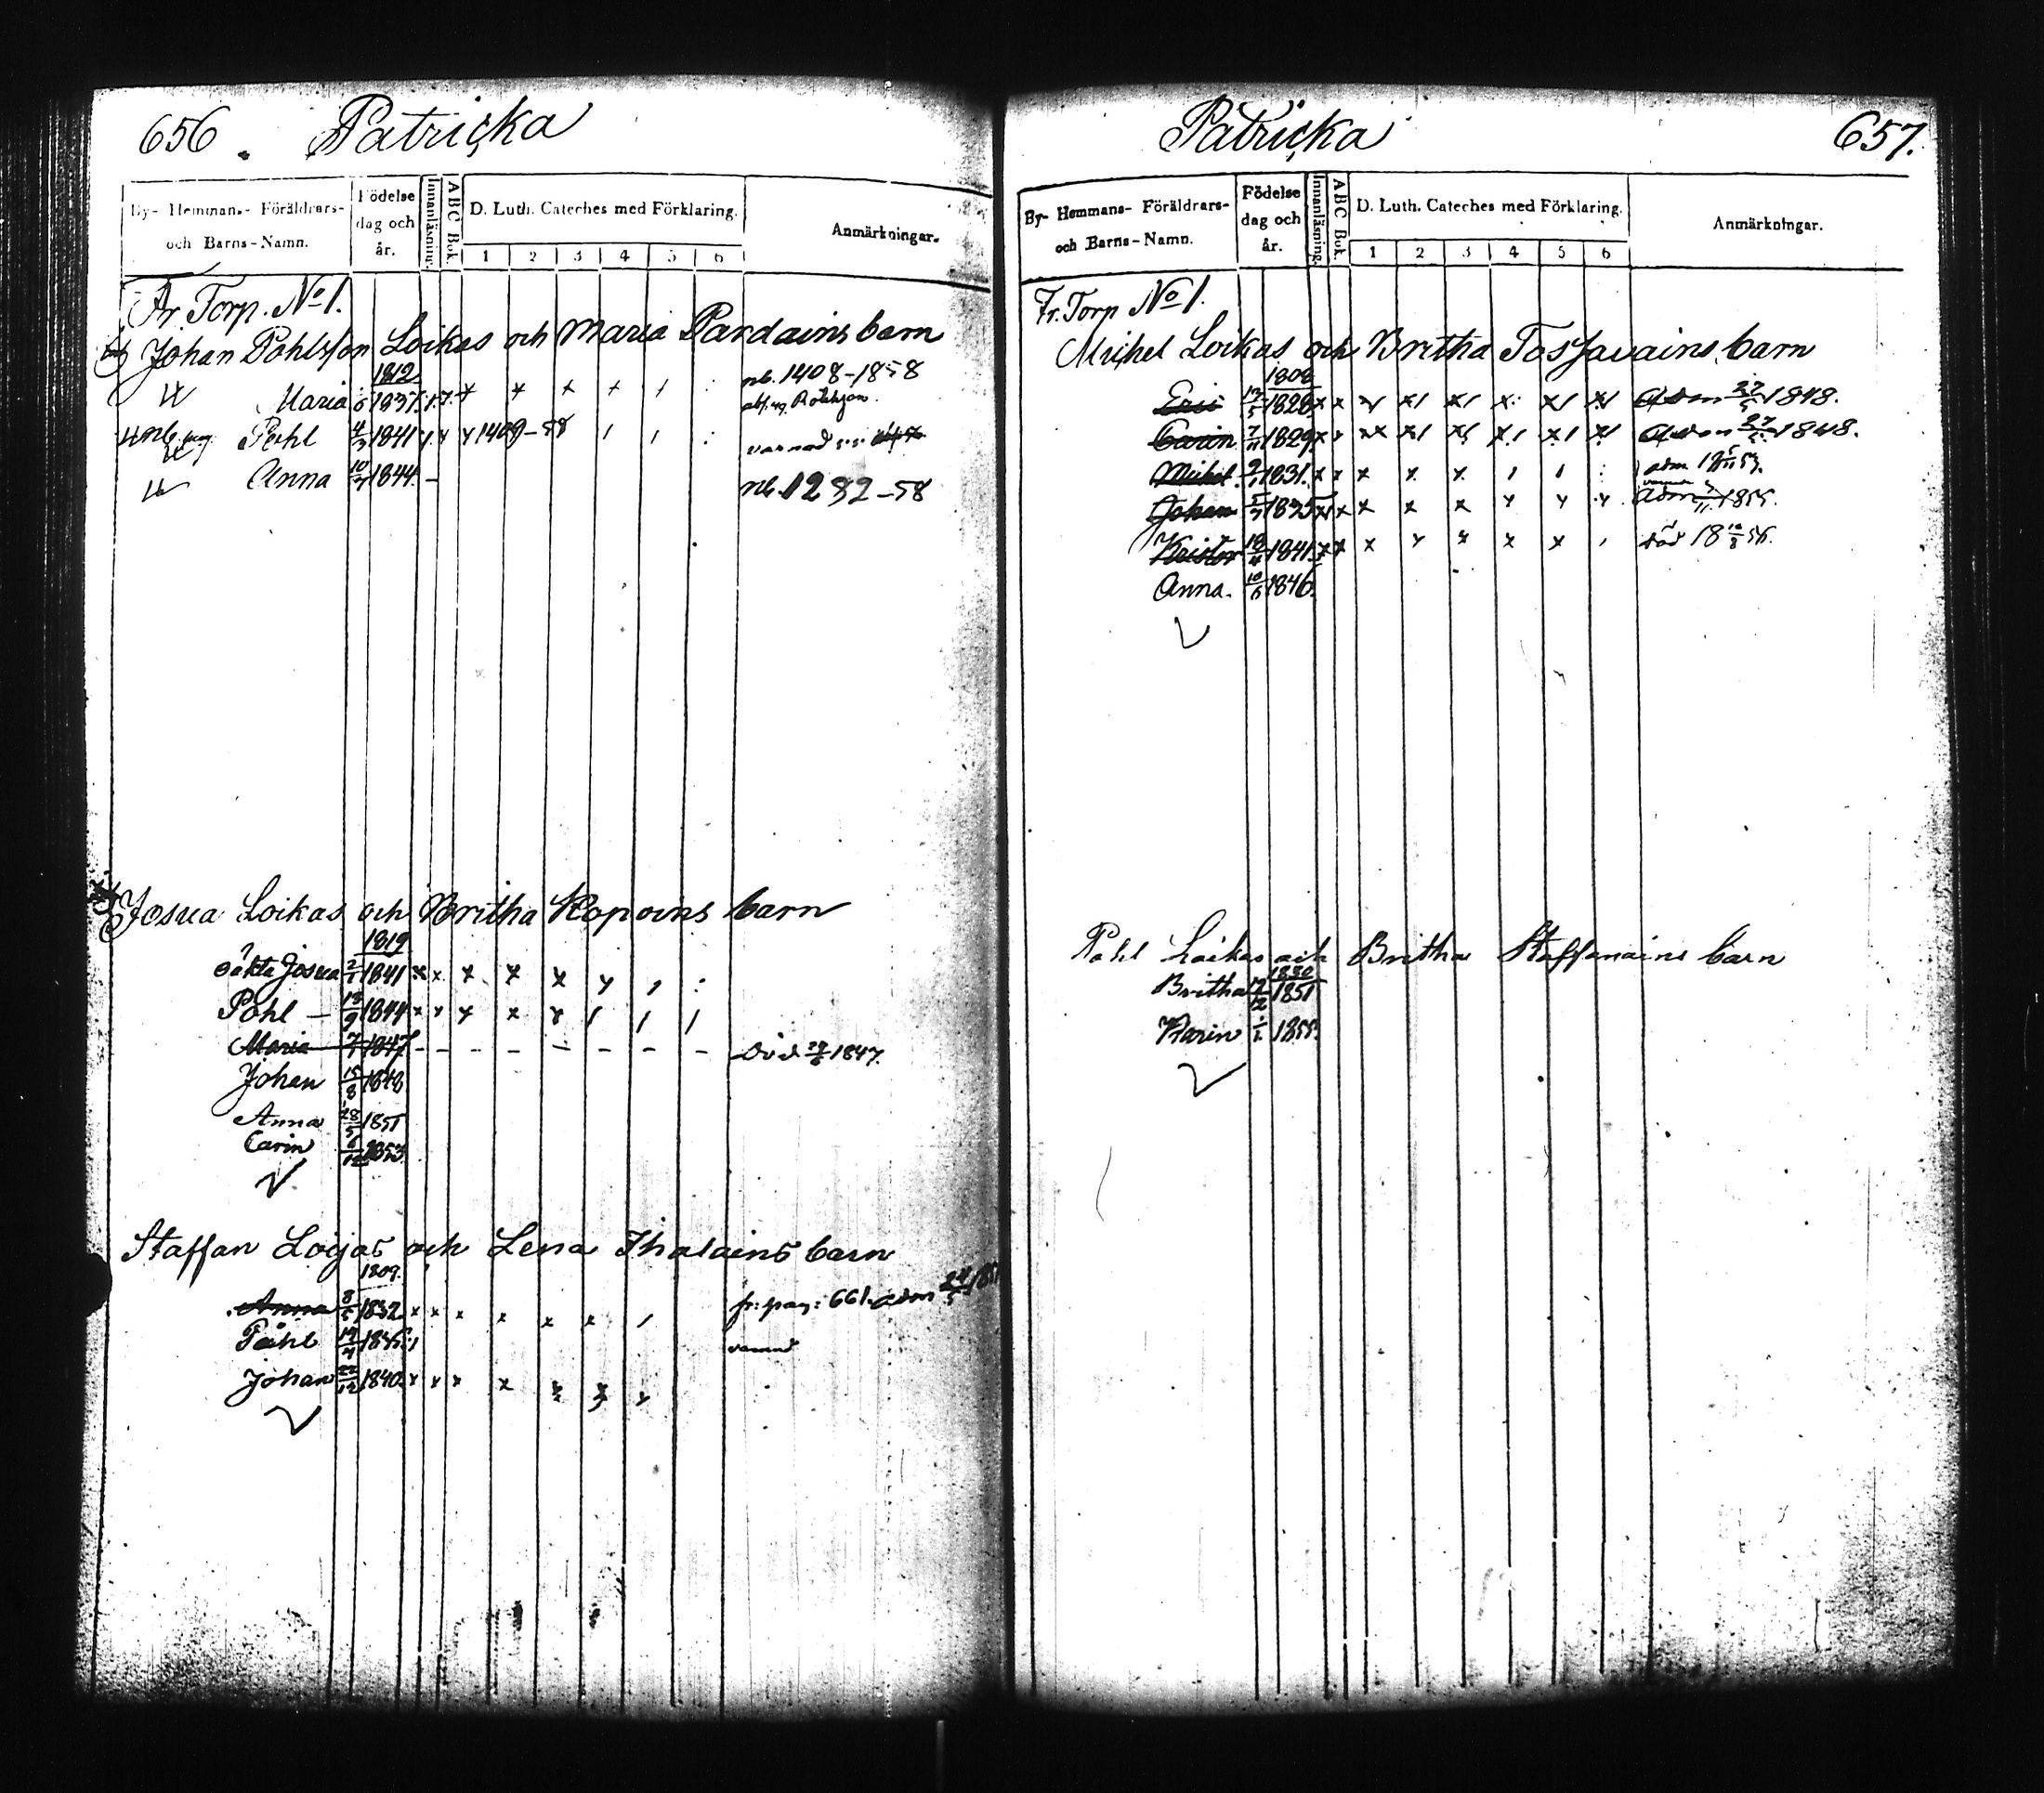 656. Patricka
By- Hemmans- Föräldrars- och Barns-Namn.
Födelse dag och år.
Innanläsning.
ABC Bok.
D. Luth. Cateches med Förklaring.
1 2 3 4 5 6
Anmärkningar.
Fr. Torp. No 1.
Johan Pohlsson Loikas och Maria Pardains barn
1812
Maria 1837 x x x + 1 nb. 1408-1858
Pohl 4/3 1841 x x x 1409-58 1 1 varnad
Anna 10/7 1844. - nb. 1292-58
Josua Loikas och Britha Kopoins barn
1819
oäkta Josua 2/1 1841 x x x x x x 1
Pohl - 13/9 1844 x x x x x 1 1 1
Maria 7/7 1847 - - - - - - - - död 1847.
Johan 15/8 1848
Anna 28/5 1851
Carin 6/12 1853
Staffan Loijas och Lena Ihalains barn
1809.
Anna 8/5 1832 x x x x x x 1 fr: pag: 661. adm
Påhl 1845 varnad
Johan 22/12 1840. x x x x x x x
Patricka 657.
By- Hemmans- Föräldrars- och Barns-Namn.
Födelse dag och år.
Innanläsning.
ABC Bok.
D. Luth. Cateches med Förklaring.
1 2 3 4 5 6
Anmärkningar.
Fr. Torp No 1.
Michel Loikas och Britha Tossavains barn
1808
Eric 17/5 1828 x x x1 x1 x1 x x1 x1 adm 27/5 1848.
Carin 7/11 1829 x x xx x1 x1 x1 x1 x1 adm 27/5 1848.
Michel 1831. x x x x x 1 1
Johan 5/7 1835 x x x x x x x x adm 1855.
Kristor 18/4 1841 x x x x x x x 1 död 18 10/8 56.
Anna. 10/6 1846.
Pohl Loikas och Britha Staffanains barn
1830
Britha 17/12 1851
Karin 1855.